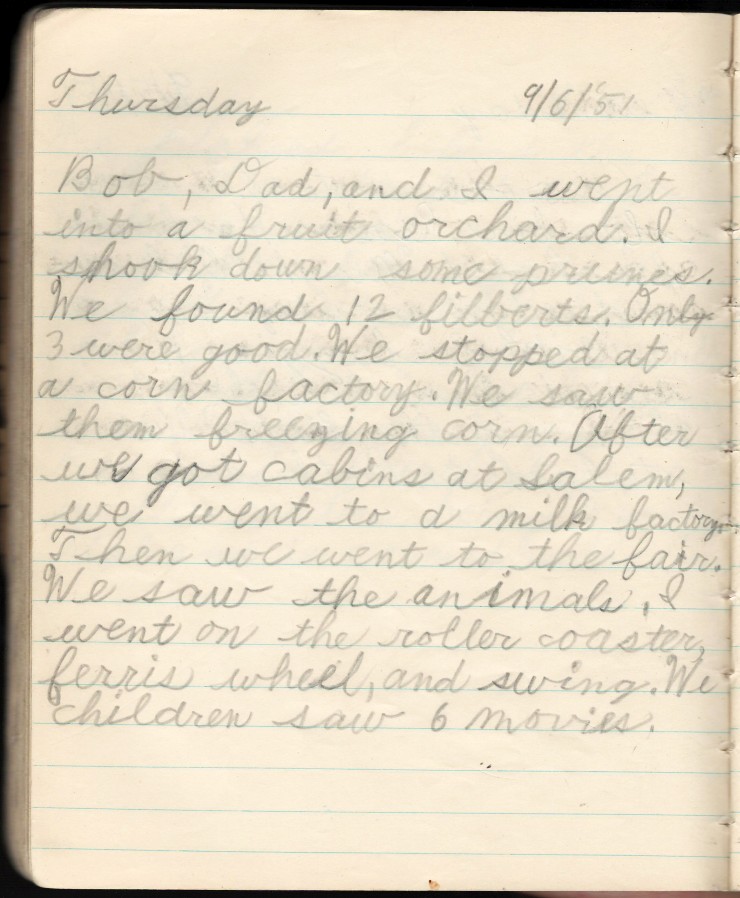 Thursday 9/6/51
Bob, Dad, and I went
into a fruit orchard. I
shook down some prunes.
We found 12 filberts. Only
3 were good. We stopped at
a corn factory. We saw
them freezing corn. After
we got cabins at Salem,
we went to a milk factory.
Then we went to the fair.
We saw the animals. I
went on the roller coaster,
ferris wheel, and swing. We
children saw 6 movies.